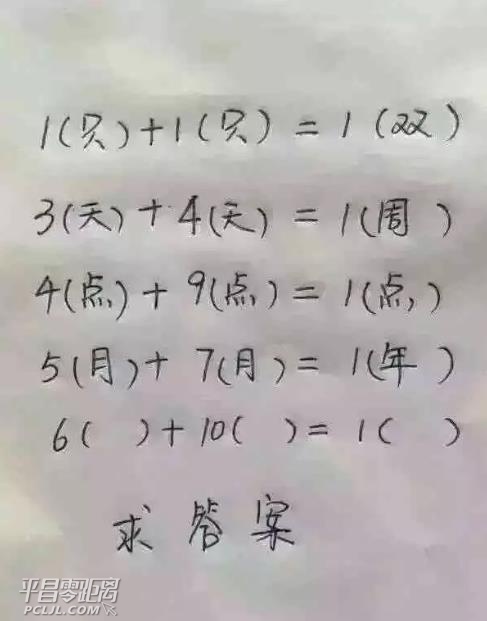 1(只)+1(只)=1(双)
3(天)+4(天)=1(周)
4(点)+9(点)=1(点)
5(月)+7(月)=1(年)
6( )+10( )=1( )
求答案
平昌零距离
PCLJL.COM